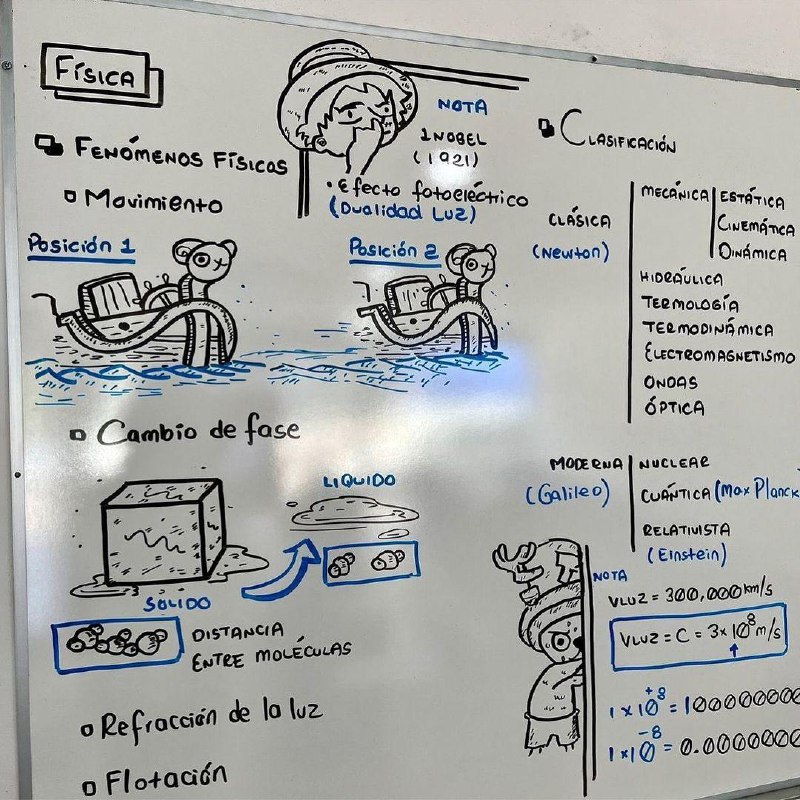 FÍSICA
FENÓMENOS FÍSICOS
Movimiento
Posición 1
Posición 2
Cambio de fase
LIQUIDO
SÓLIDO
DISTANCIA
ENTRE MOLÉCULAS
Refracción de la luz
Flotación
NOTA
1 NOBEL
(1921)
• Efecto fotoeléctrico
(Dualidad Luz)
CLASIFICACIÓN
CLÁSICA
(Newton)
MECÁNICA
ESTÁTICA
CINEMÁTICA
DINÁMICA
HIDRÁULICA
TERMOLOGÍA
TERMODINÁMICA
ELECTROMAGNETISMO
ONDAS
ÓPTICA
MODERNA
(Galileo)
NUCLEAR
CUÁNTICA (Max Planck
RELATIVISTA
(Einstein)
NOTA
VLUZ = 300,000 km/s
VLUZ = C = 3x10⁸ m/s
1x10⁺⁸ = 100000000
1x10⁻⁸ = 0.0000000